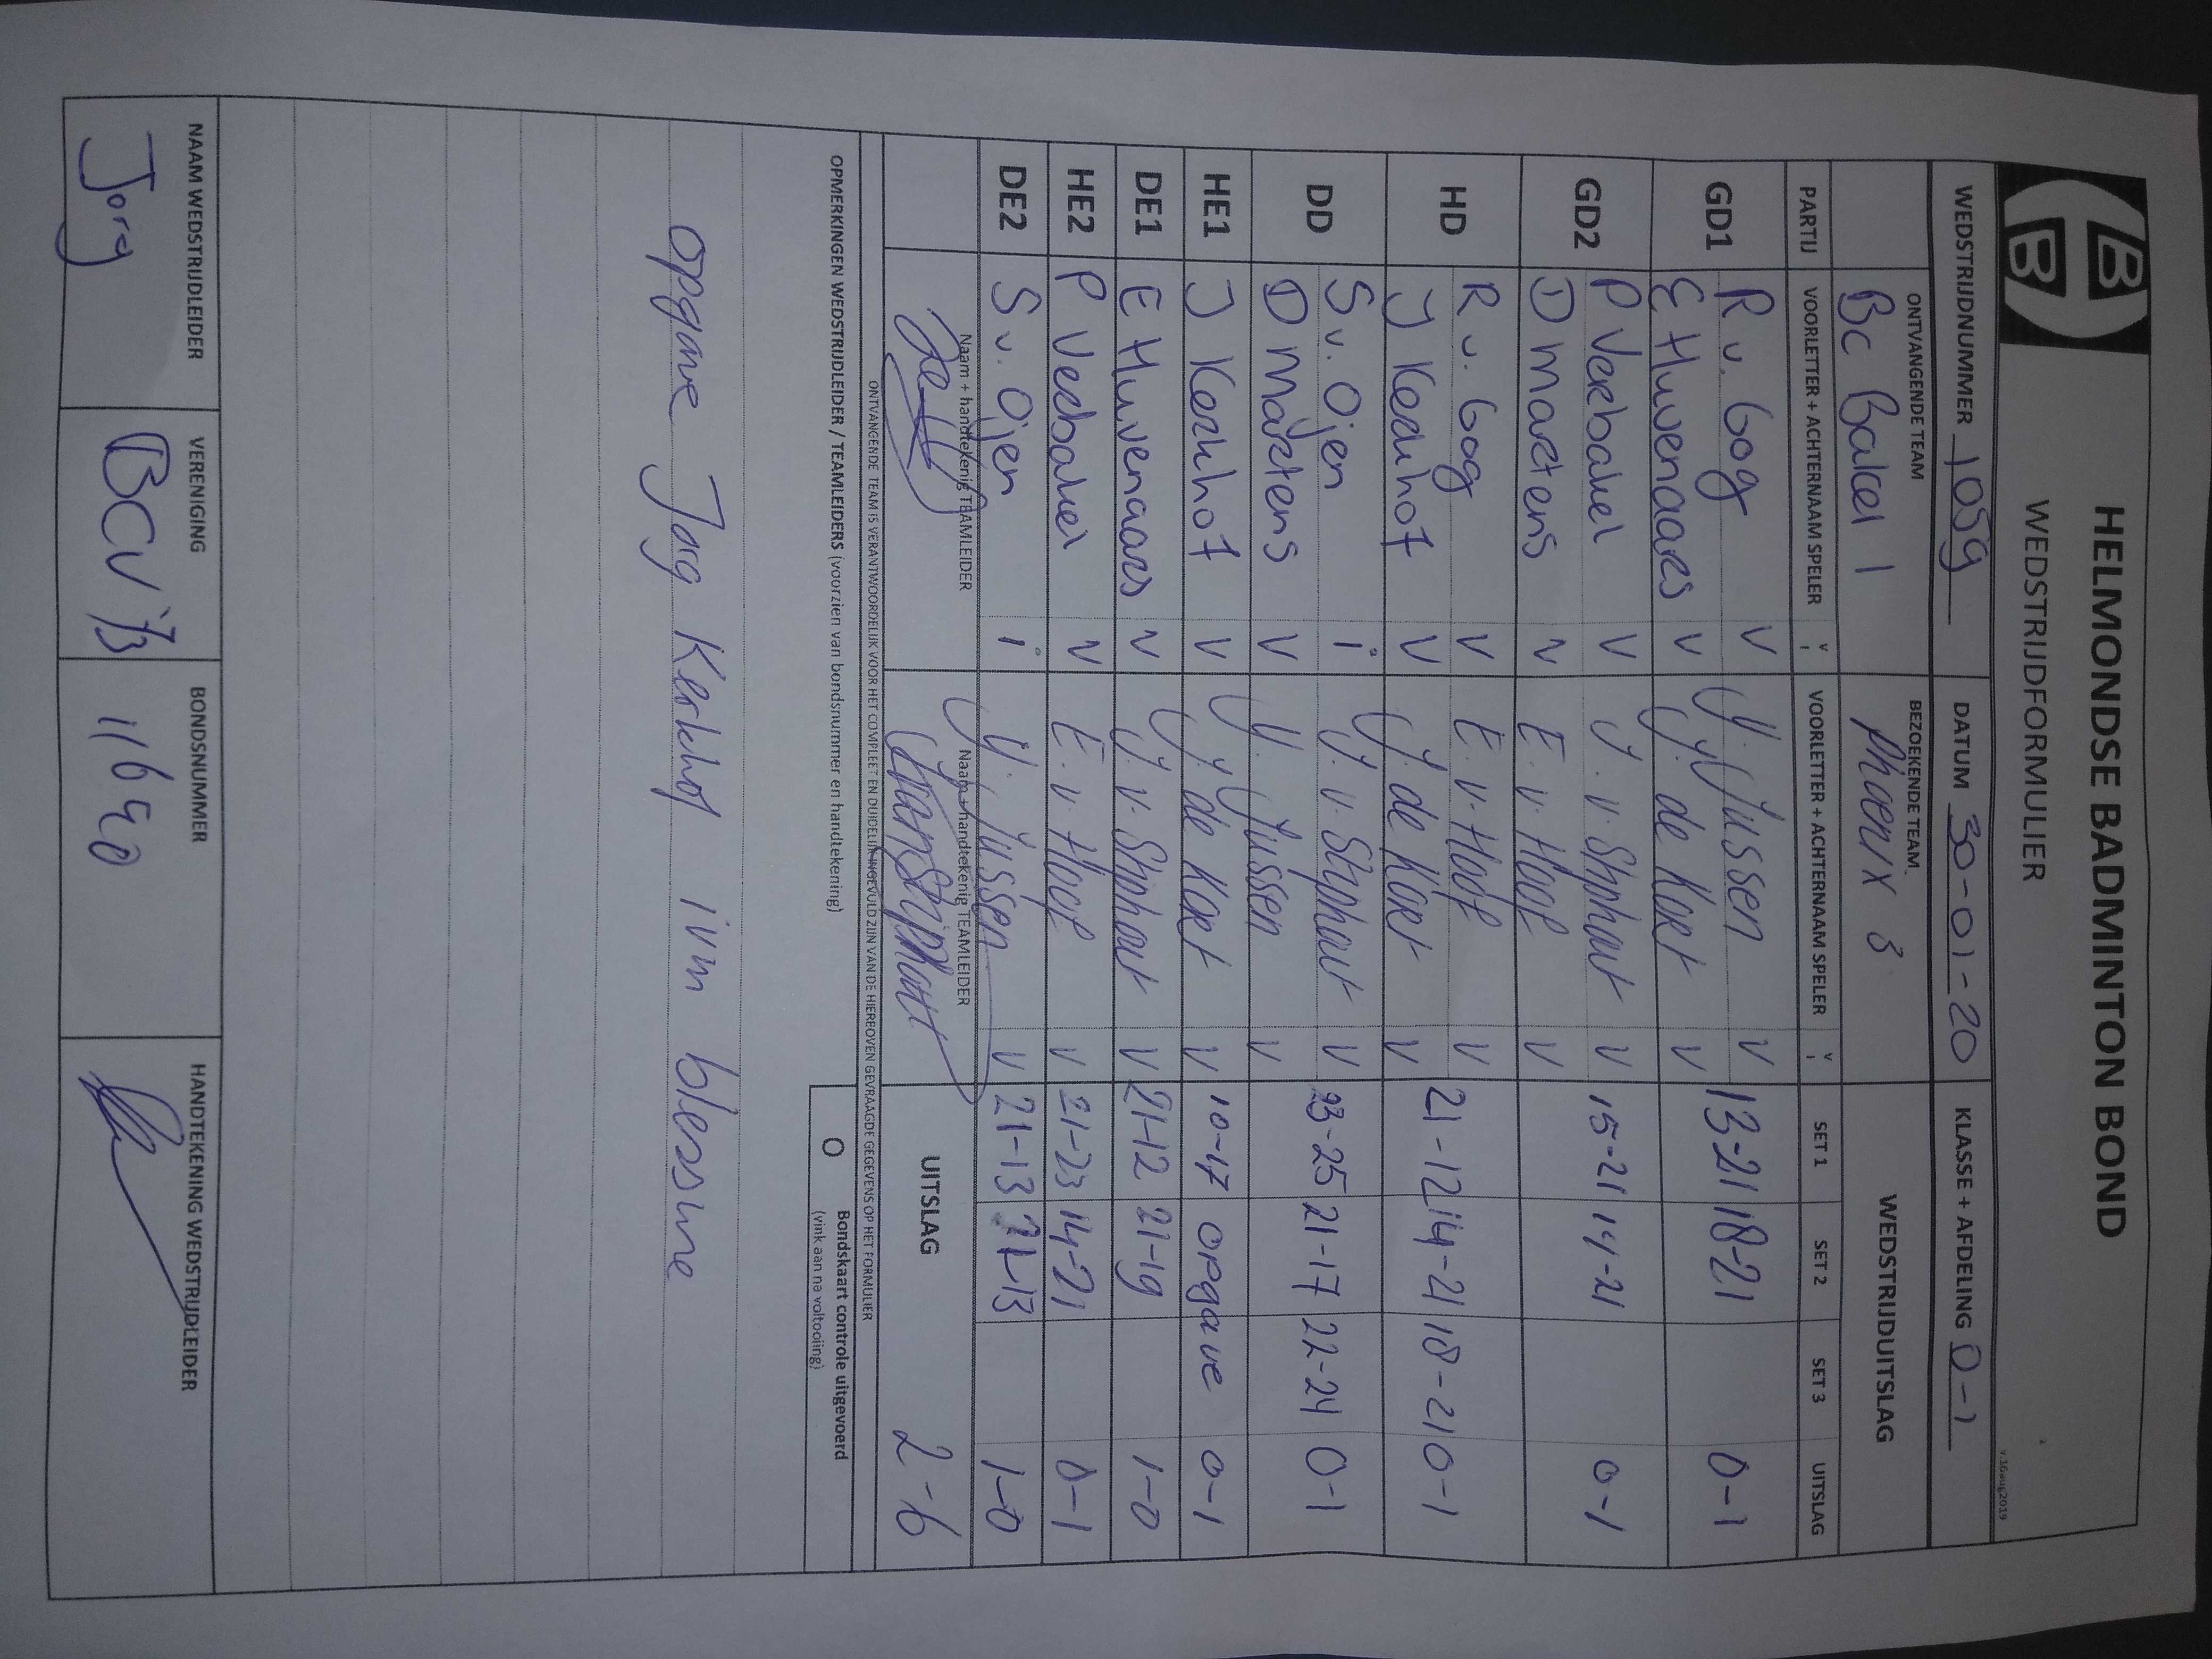 HELMONDSE BADMINTON BOND
WEDSTRIJDFORMULIER
v.16aug2019
WEDSTRIJDNUMMER 1059 DATUM 30-01-20 KLASSE + AFDELING 0-1
ONTVANGENDE TEAM BEZOEKENDE TEAM WEDSTRIJDUITSLAG
Bc Bakel 1 Phoenix 3
PARTIJ VOORLETTER + ACHTERNAAM SPELER V I VOORLETTER + ACHTERNAAM SPELER V I SET 1 SET 2 SET 3 UITSLAG
GD1 R v. Gog V Y. Jussen V 13-21 18-21 0-1
E Huvenaars V J. de Kort V
GD2 P Verbakel V J. v. Stiphout V 15-21 14-21 0-1
D Martens V E. v. Hoof V
HD R v. Gog V E. v. Hoof V 21-12 14-21 18-21 0-1
J Kerkhof V J. de Kort V
DD S v. Ojen i J. v. Stiphout V 23-25 21-17 22-24 0-1
D Martens V Y. Jussen V
HE1 J Kerkhof V J. de Kort V 10-17 opgave 0-1
DE1 E Huvenaars V J. v. Stiphout V 21-12 21-19 1-0
HE2 P Verbakel V E. v. Hoof V 21-23 14-21 0-1
DE2 S v. Ojen i Y. Jussen V 21-13 21-13 1-0
Naam + handtekenig TEAMLEIDER Naam + handtekenig TEAMLEIDER UITSLAG 2-6
ONTVANGENDE TEAM IS VERANTWOORDELIJK VOOR HET COMPLEET EN DUIDELIJK INGEVULD ZIJN VAN DE HIERBOVEN GEVRAAGDE GEGEVENS OP HET FORMULIER
OPMERKINGEN WEDSTRIJDLEIDER / TEAMLEIDERS (voorzien van bondsnummer en handtekening)
O Bondskaart controle uitgevoerd
(vink aan na voltooiing)
opgave Jorg Kerkhof ivm blessure
NAAM WEDSTRIJDLEIDER VERENIGING BONDSNUMMER HANDTEKENING WEDSTRIJDLEIDER
Jorg BCV '73 11690